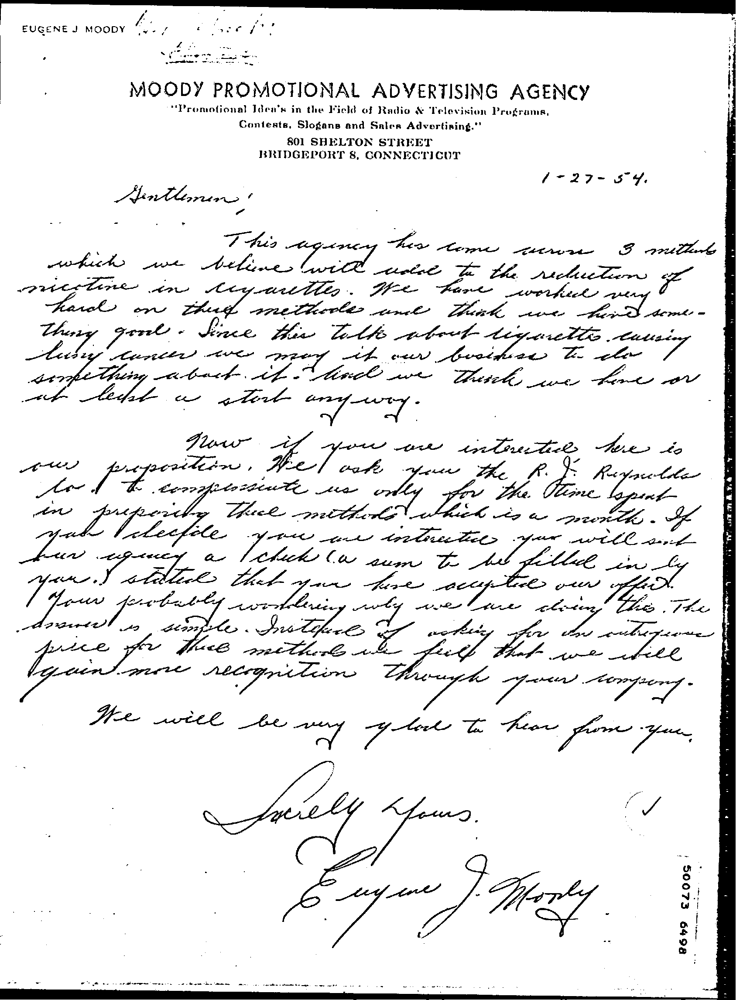 EUGENE J MOODY
MOODY PROMOTIONAL ADVERTISING AGENCY
"Promotional Idea's in the Field of Radio & Television Programs,
Contests, Slogans and Sales Advertising."
801 SHELTON STREET
BRIDGEPORT 8, CONNECTICUT
1-27-54.
Gentlemen!
This agency has come across 3 methods
which we believe will add to the reduction of
nicotine in cigarettes. We have worked very
hard on these methods and think we have some-
thing good. Since this talk about cigarettes causing
lung cancer we may it our business to do
something about it. And we think we have or
at least a start anyway.
Now if you are interested here is
our proposition. We ask you the R. J. Reynolds
Co. to compensate us only for the time spent
in preparing these methods which is a month. If
you decide you are interested you will send
our agency a check (a sum to be filled in by
you.) stated that you have accepted our offer.
Your probably wondering why we are doing this. The
answer is simple. Instead of asking for an outrageous
price for these methods we feel that we will
gain more recognition through your company.
We will be very glad to hear from you.
Yours.
Eugene J. Moody
50073 6498